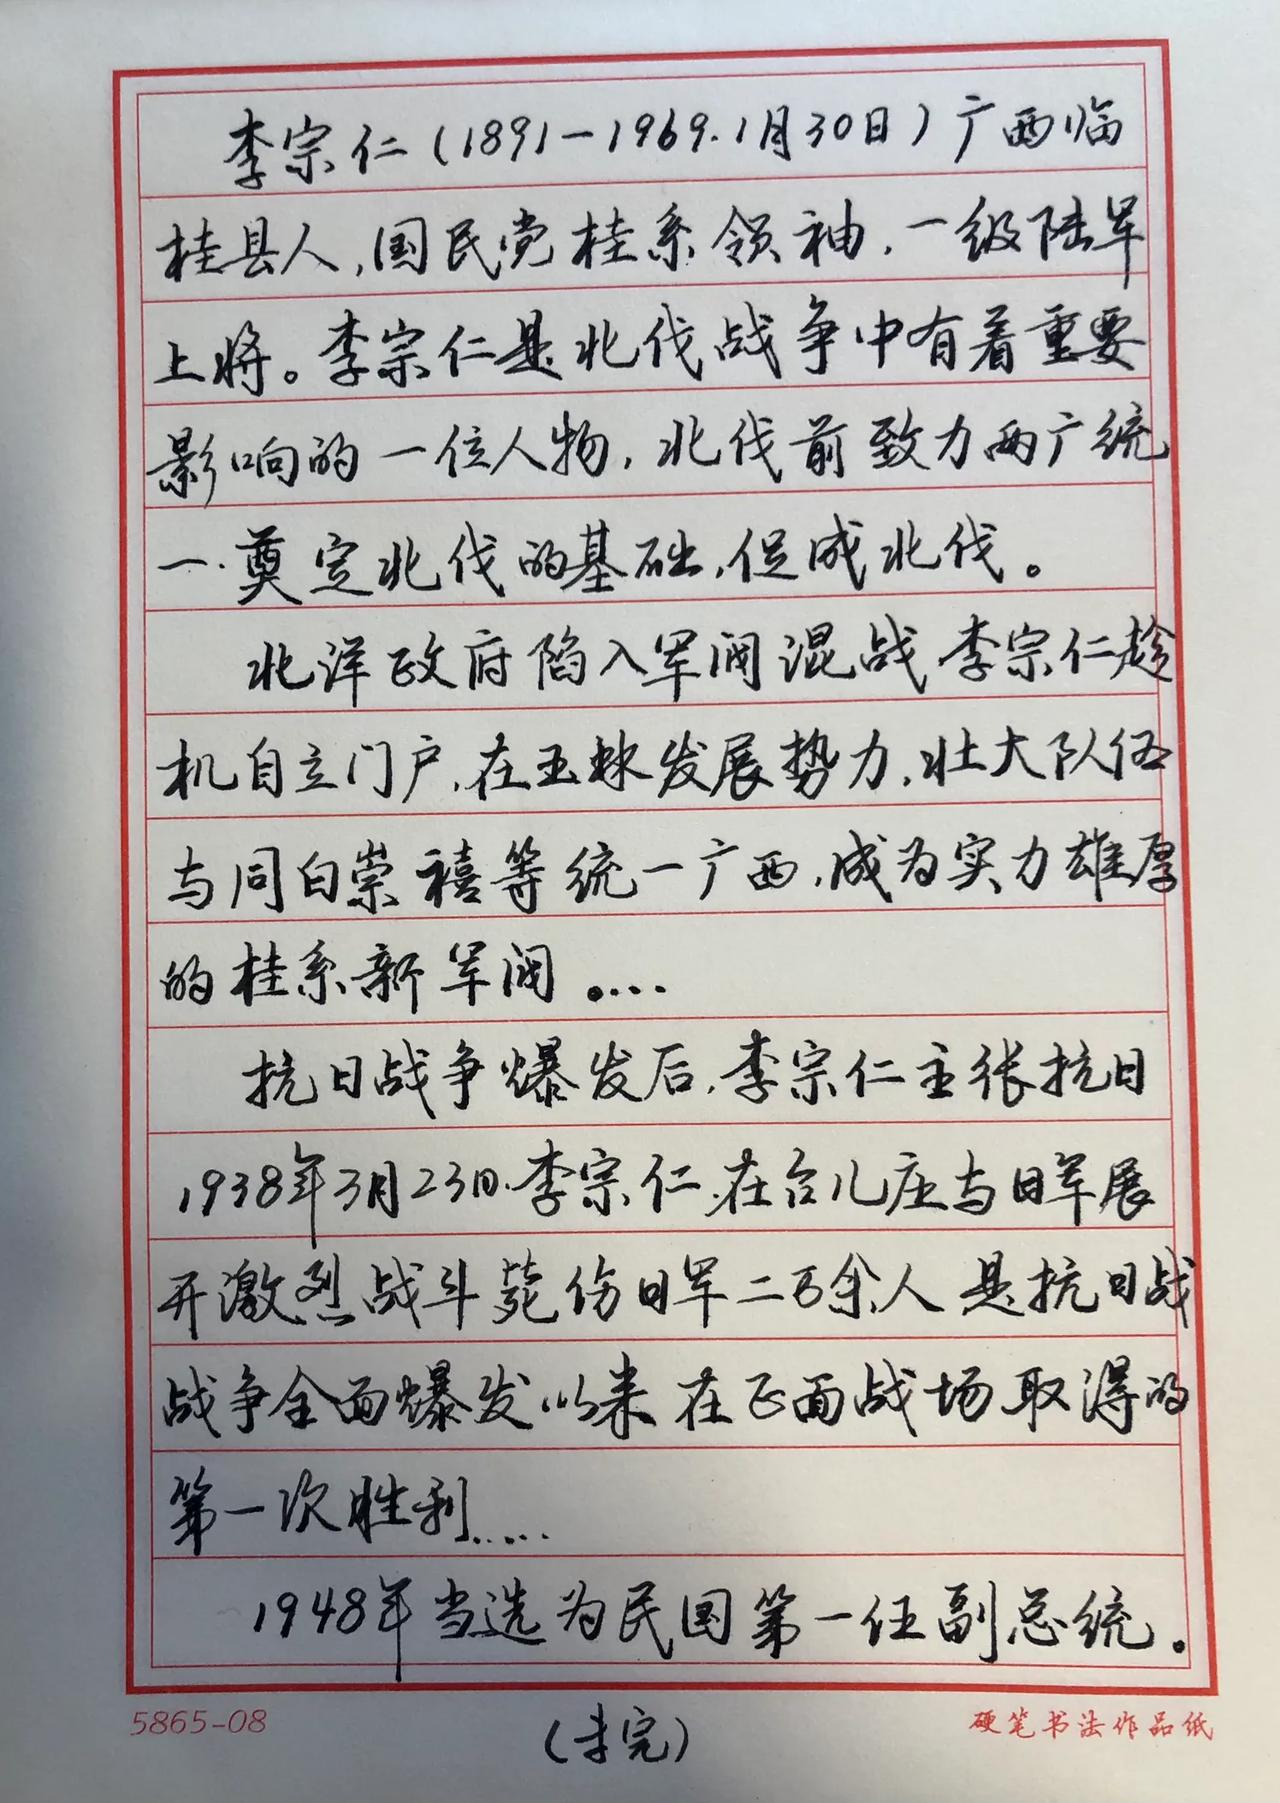 李宗仁(1891-1969.1月30日)广西临
桂县人,国民党桂系领袖,一级陆军
上将。李宗仁是北伐战争中有着重要
影响的一位人物,北伐前致力两广统
一.奠定北伐的基础,促成北伐。
北洋政府陷入军阀混战.李宗仁趁
机自立门户,在玉林发展势力,壮大队伍
与同白崇禧等统一广西,成为实力雄厚
的桂系新军阀....
抗日战争爆发后,李宗仁主张抗日
1938年3月23日.李宗仁.在台儿庄与日军展
开激烈战斗毙伤日军二万余人是抗日战
战争全面爆发以来在正面战场取得的
第一次胜利.....
1948年当选为民国第一任副总统。
5865-08
(未完)
硬笔书法作品纸